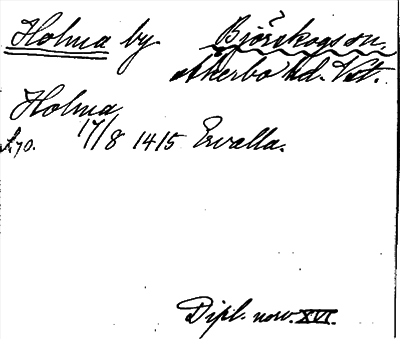 Holma by Björskogs sn.
Åkerbo hd. Vstm.
Holma
17/8 1415 Ervalla.
Dipl. norv. XVI.